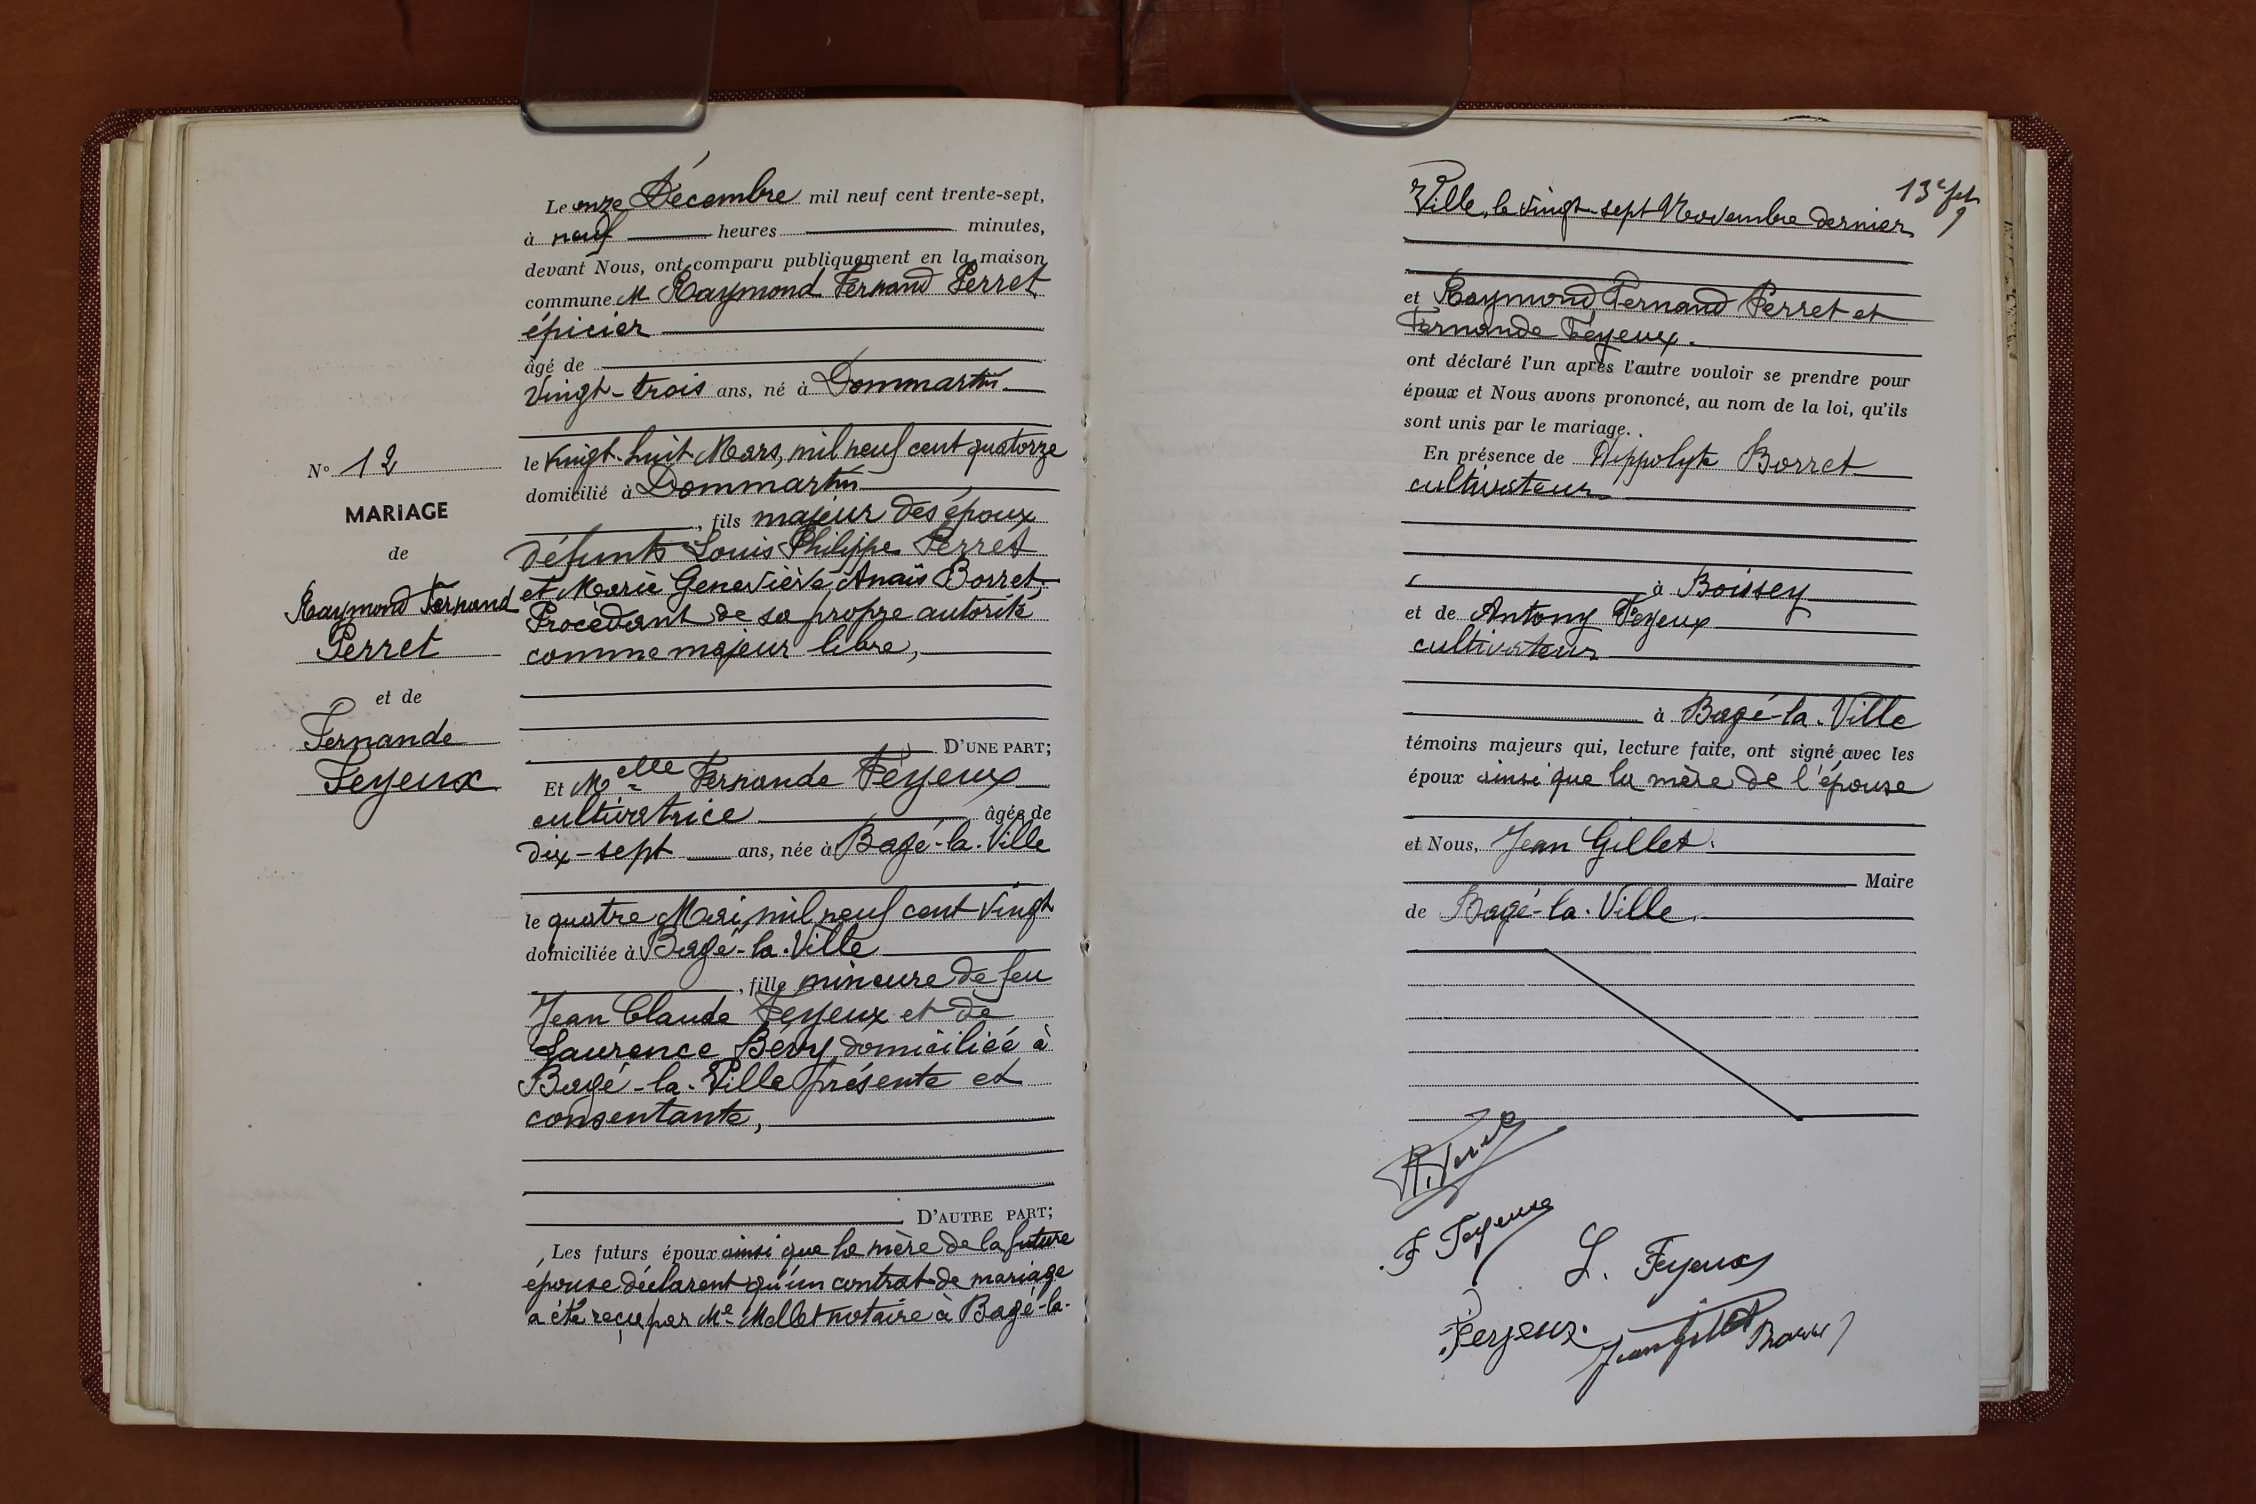 Le onze Décembre mil neuf cent trente-sept,
à neuf heures minutes,
devant Nous, ont comparu publiquement en la maison
commune M Raymond Fernand Perret
épicier
âgé de
vingt-trois ans, né à Dommartin
le vingt-huit Mars, mil neuf cent quatorze
domicilié à Dommartin
, fils majeur des époux
défunts Louis Philippe Perret
et Marie Geneviève Anaïs Borret,
Procédant de sa propre autorité
comme majeur libre,
D'UNE PART;
N° 12
MARIAGE
de
Raymond Fernand
Perret
et de
Fernande
Feyeux
Et Melle Fernande Feyeux
cultivatrice âgée de
dix-sept ans, née à Bagé-la-Ville
le quatre Mai, mil neuf cent vingt
domiciliée à Bagé-la-Ville
, fille mineure de feu
Jean Claude Feyeux et de
Laurence Bévy domiciliée à
Bagé-la-Ville présente et
consentante,
D'AUTRE PART;
Les futurs époux ainsi que la mère de la future
épouse déclarent qu'un contrat de mariage
a été reçu par Me Mellet notaire à Bagé-la-
13e
Ville, le vingt-sept Novembre dernier
et Raymond Fernand Perret et
Fernande Feyeux.
ont déclaré l'un après l'autre vouloir se prendre pour
époux et Nous avons prononcé, au nom de la loi, qu'ils
sont unis par le mariage.
En présence de Hippolyte Borret
cultivateur
à Boissey
et de Antony Feyeux
cultivateur
à Bagé-la-Ville
témoins majeurs qui, lecture faite, ont signé avec les
époux ainsi que la mère de l'épouse
et Nous, Jean Gillet.
Maire
de Bagé-la-Ville.
F Feyeux
L. Feyeux
Feyeux.